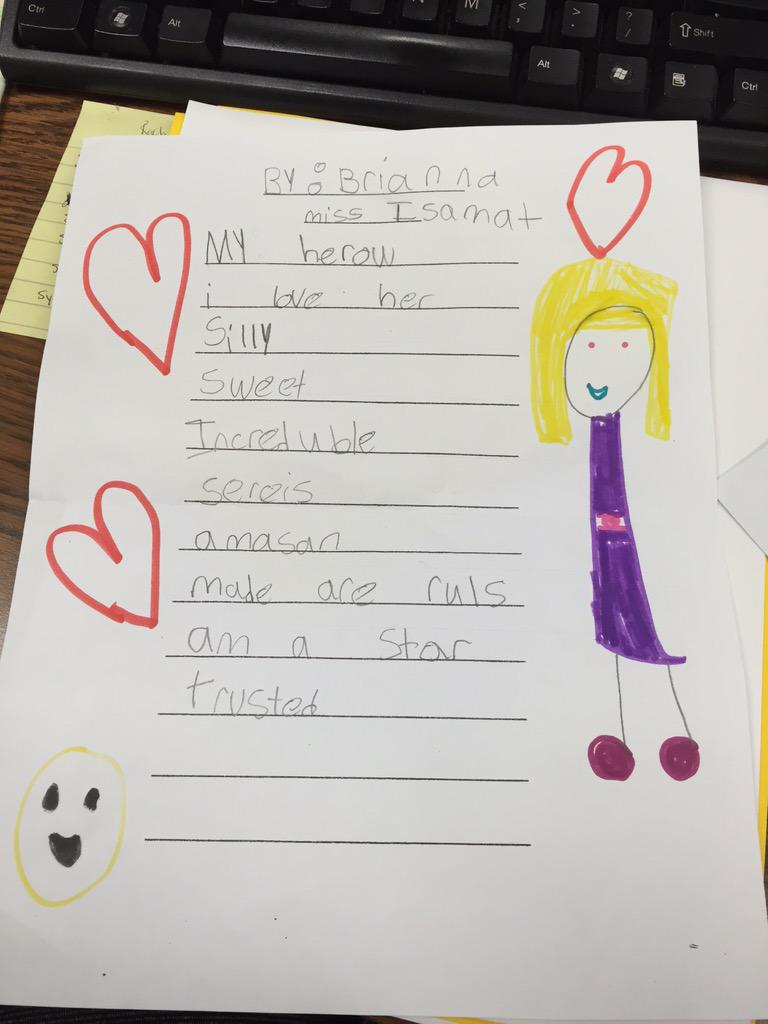 Ctrl
Alt
M
<
,
>
.
?
/
Shift
Alt
Ctrl
BY: Brianna
miss Isamat
MY herow
i love her
Silly
Sweet
Increduble
serois
amasan
made are ruls
am a Star
trusted